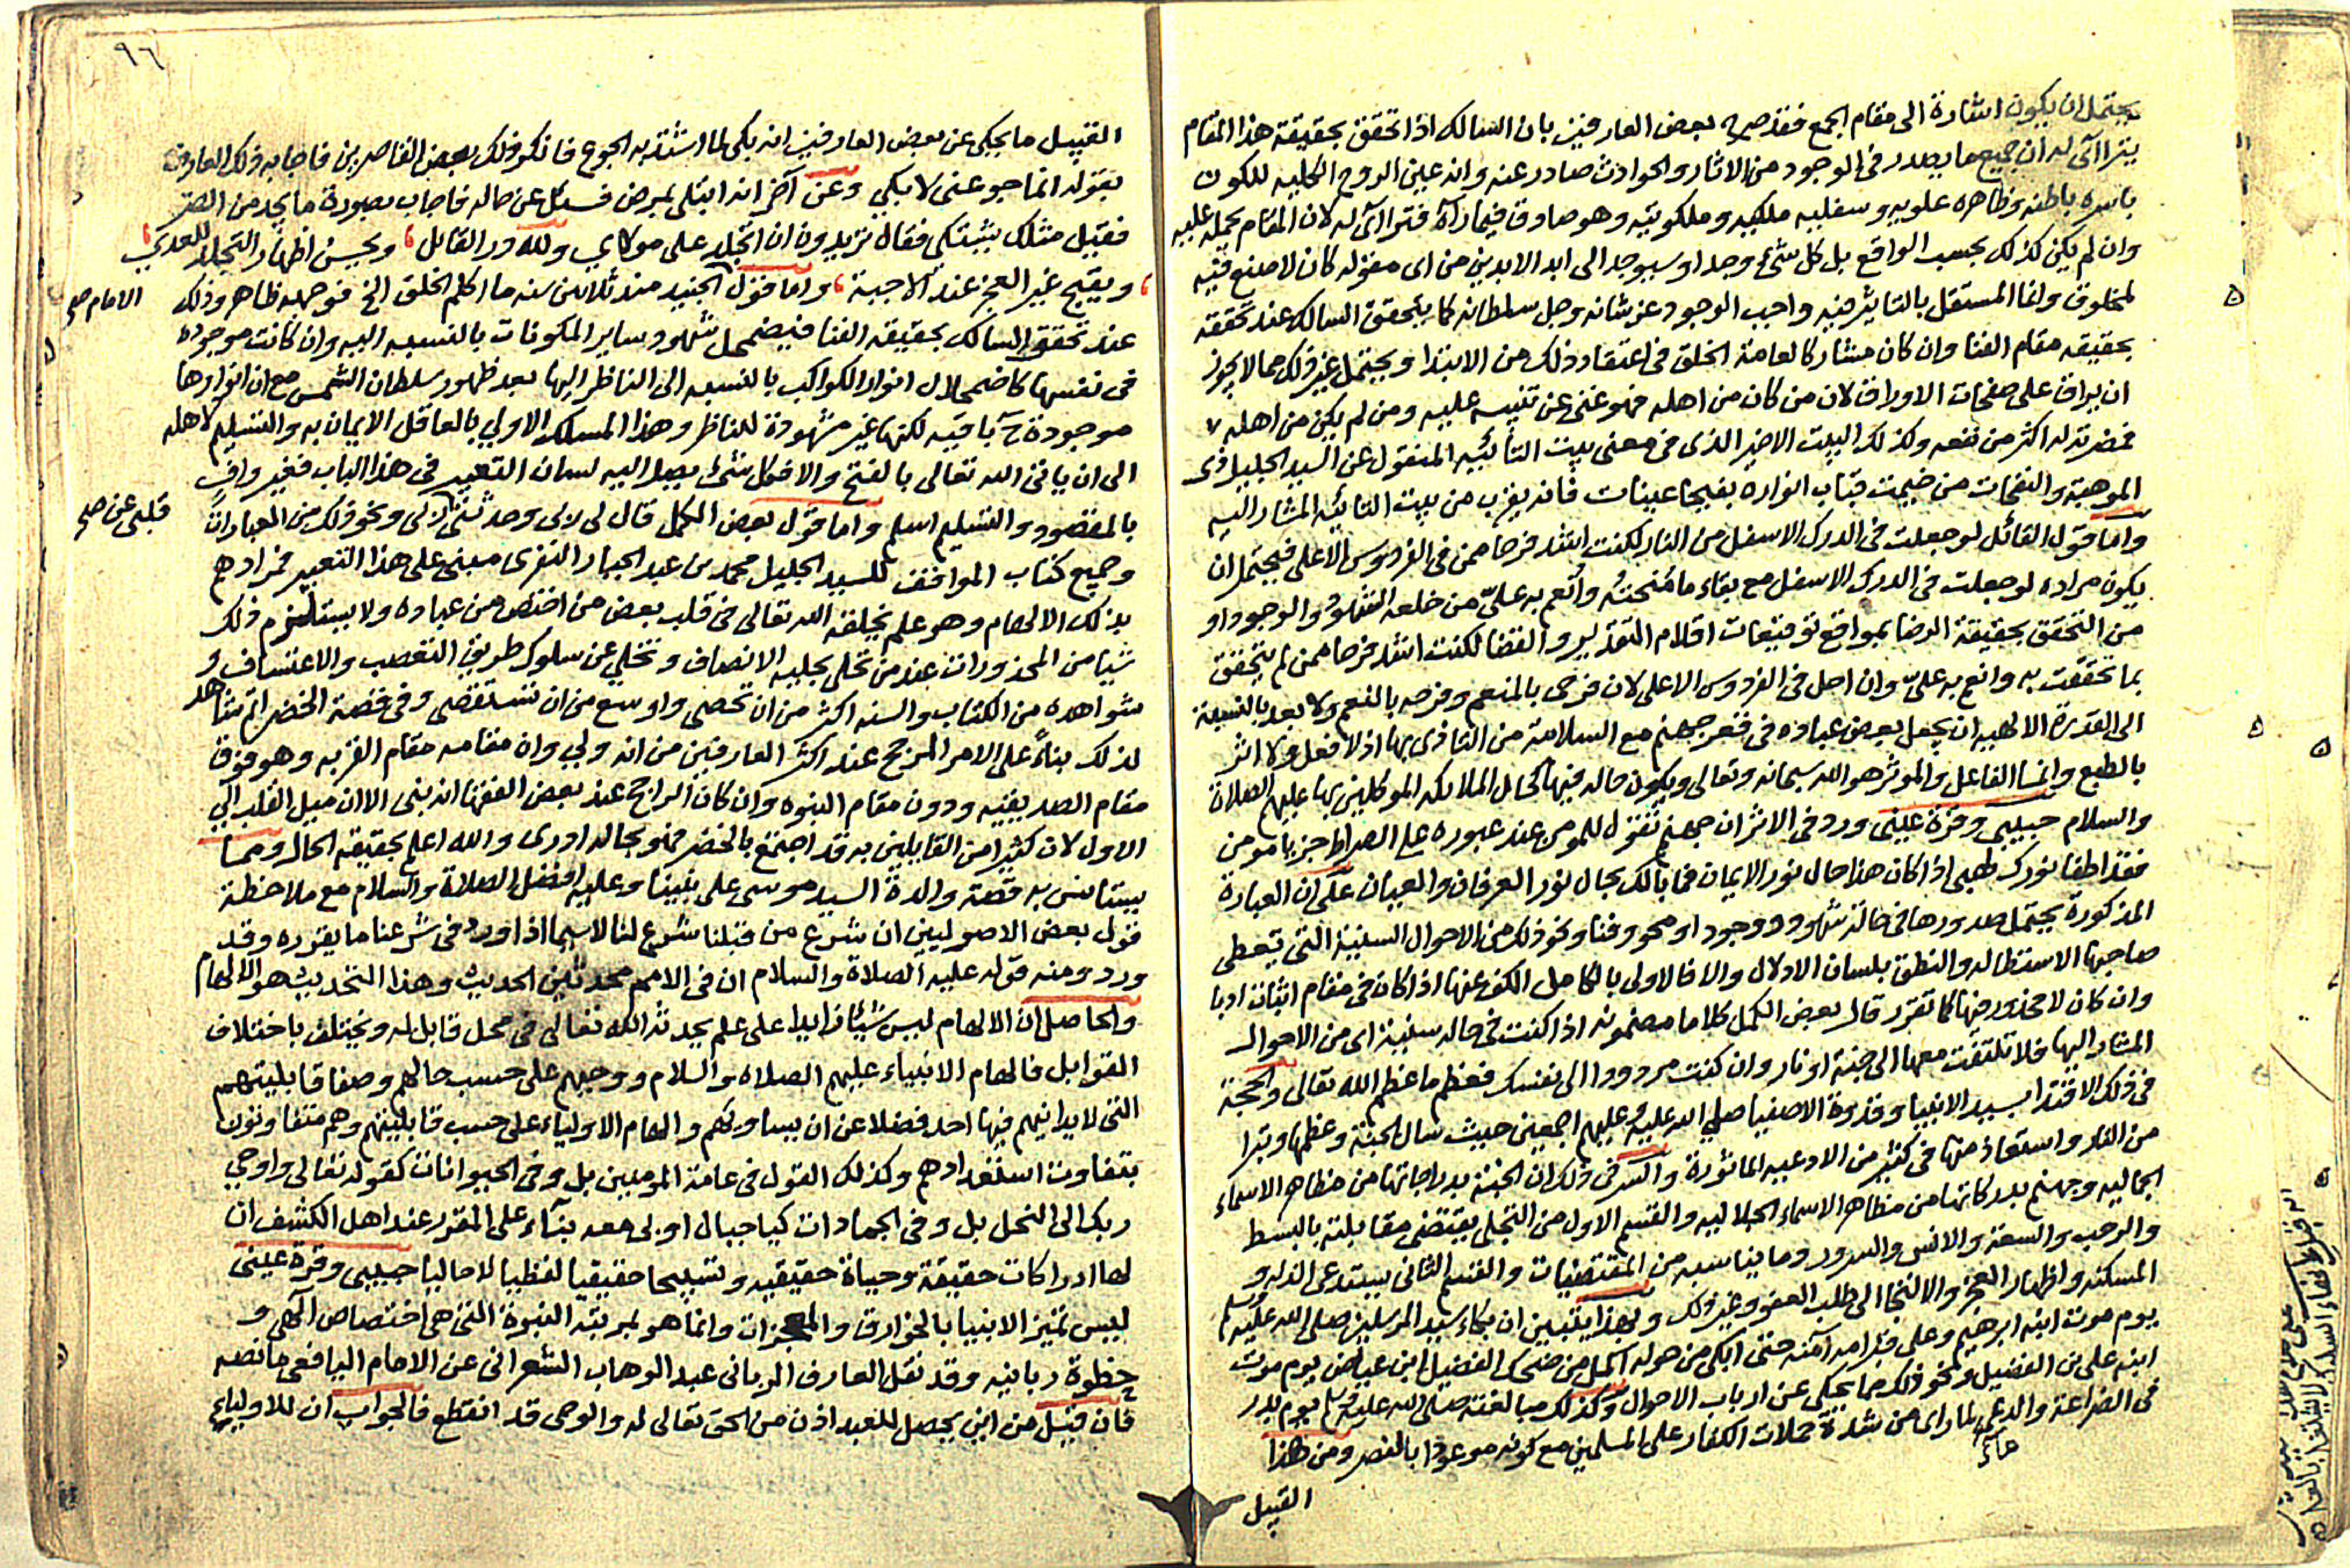 يحتمل ان يكون اشارة الى مقام الجمع فقد صرح بعض العارفين بان السالك اذا تحقق بحقيقة هذا المقام
يتراآى له ان جميع ما يصدر في الوجود من الاثار والحوادث صادر عنه وانه عين الروح الكليه للكون
باسره باطنه وظاهره علويه وسفليه ملكيه وملكوتيه وهو صادق فيما رآه فتراآى له لان المقام يحمله عليه
وان لم يكن كذلك بحسب الواقع بل كل شيء وجد او سيوجد الى ابد الابدين من اى مقوله كان لا صنع فيه
لمخلوق وانما المستقل بالتاثير فيه واجب الوجود عز شانه وجل سلطانه كما يتحقق السالك عند تحققه
بحقيقه مقام الفنا وان كان مشاركا لعامة الخلق في اعتقاد ذلك من الابتدا ويحتمل غير ذلك مما لا يجوز
ان يراق على صفحات الاوراق لان من كان من اهله فهو غنى عن تنبيه عليه ومن لم يكن من اهله
فمضرته له اكثر من نفعه وكذلك البيت الاخير الذى في معنى بيت التائيه المنقول عن السيد الجليل ذى
الموهبة والنفحات من ضيمت قباب انواره بفيحا عينات فانه يقرب من بيت التائيه المشار اليه
واما قول القائل لو جعلت في الدرك الاسفل من النار لكنت اشد فرحا ممن في الفردوس الاعلى فيحتمل ان
يكون مراده لو جعلت في الدرك الاسفل مع بقاء ما مُنحتُه وأُنعم به علىّ من خلعه الشهود والوجود او
من التحقق بحقيقة الرضا بمواقع توقيعات اقلام التقدير والقضا لكنت اشد فرحا ممن لم يتحقق
بما تحققت به وانعم به علىّ وان احل في الفردوس الاعلى لان فرحى بالمنعم وفرحه بالنعم ولا بعد بالنسبة
الى القدرة الالهيه ان يجعل بعض عباده في قعر جهنم مع السلامة من التاذى بها اذ لا فعل ولا اثر
بالطبع وانما الفاعل والموثر هو الله سبحانه وتعالى ويكون حاله فيها كحال الملائكه الموكلين بها عليهم الصلاة
والسلام حبيبي وقرة عيني ورد في الاثر ان جهنم تقول للمومن عند عبوره على الصراط جز يا مومن
فقد اطفا نورك لهبي اذا كان هذا حال نور الايمان فما بالك بحال نور العرفان والعيان على ان العبارة
المذكورة يحتمل صدورها في حالة شهود ووجود او محو وفنا ونحو ذلك من الاحوال السنية التى يتعطى
صاحبها الاستطاله والنطق بلسان الادلال والا فالاولى بالكامل الكف عنها اذا كان في مقام اثبات ادبا
وان كان لا محذور فيها كما تقرر قال بعض الكمل كلاما مضمونه اذا كنت في حاله سنيه اى من الاحوال
المشار اليها فلا تلتفت معها الى جنة او نار وان كنت مردودا الى نفسك فعظم ما عظم الله تعالى والحجة
في ذلك الاقتدا بسيد الانبيا وقدوة الاصفيا صلى الله عليه وعليهم اجمعين حيث سال الجنة وعظمها وتبرا
من النار واستعاذ منها في كثير من الادعيه الماثورة والسر في ذلك ان الجنة بدرجاتها من مظاهر الاسماء
الجماليه وجهنم بدركاتها من مظاهر الاسماء الجلاليه والقسم الاول من التجلى يقتضى مقابلته بالبسط
والرحب والسعة والانس والسرور وما يناسبه من المقتضيات والقسم الثانى يستدعى الذله و
المسكنه واظهار العجز والالتجا الى طلب العفو وغير ذلك وبهذا يتبين ان بكاء سيد المرسلين صلى الله عليه وسلم
يوم موت ابنه ابرهيم وعلى قبر امه آمنه حتى ابكى من حوله اكمل من ضحك الفضيل ابن عياض يوم موت
ابنه على بن الفضيل ونحو ذلك مما يحكى عن ارباب الاحوال وكذلك مبالغته صلى الله عليه وسلم يوم بدر
في الضراعة والدعى لما راى من شدة حملات الكفار على المسلمين مع كونه موعودا بالنصر ومن هذا
عاء
القبيل
٩٦
القبيل ما يحكى عن بعض العارفين انه بكى لما اشتد به الجوع فانكر ذلك بعض القاصرين فاجابه ذلك العارف
بقوله انما جوعنى لابكي وعن آخر انه ابتلى بمرض فسئل عن حاله فاجاب بصورة ما يجد من الضر
فقيل مثلك يشتكى فقال تريدون ان اتجلد على مولاي ولله در القائل ، ويحسن اظهار التجلد للعدى ،
، ويقبح غير العجز عند الاحبة ، واما قول الجنيد منذ ثلاثين سنه ما اكلم الخلق الخ فتوجيه ظاهر وذلك
الامام صح
عند تحقق السالك بحقيقه الفنا فيضمحل شهود ساير المكونات بالنسبه اليه وان كانت موجوده
في نفسها كاضمحلال انوار الكواكب بالنسبه الى الناظر اليها بعد ظهور سلطان الشمس مع ان انوارها
موجودة ح باقيه لكنها غير مشهودة للناظر وهذا المسلك الاولى بالعاقل الايمان به والتسليم لاهله
الى ان ياتى الله تعالى بالفتح والا فكل شيء يصل اليه لسان التعبير في هذا الباب فغير وافٍ
بالمقصود والتسليم اسلم واما قول بعض الكمل قال لى ربى وحدثنى ربى ونحو ذلك من العبارات
قلبى عن صح
وجميع كتاب المواقف للسيد الجليل محمد بن عبد الجبار النفرى مبنى على هذا التعبير فمرادهم
بذلك الالهام وهو علم يخلقه الله تعالى في قلب بعض من اختص من عباده ولا يستلزم ذلك
شيا من المحذورات عند من تحلى بحليه الانصاف وتخلى عن سلوك طريق التعصب والاعتساف و
شواهده من الكتاب والسنه اكثر من ان تحصى واوسع من ان تستقصى وفي قصة الخضر اتم شاهد
لذلك بناءً على الامر المرجح عند اكثر العارفين من انه ولي وان مقامه مقام القربه وهو فوق
مقام الصديقيه ودون مقام النبوه وان كان الراجح عند بعض الفقها انه نبى الا ان ميل القلب الى
الاول لان كثيرا من القايلين به قد اجتمع بالخضر فهو بحاله ادرى والله اعلم بحقيقه الحال ومما
يستانس به قصة والدة السيد موسى على نبينا وعليه افضل الصلاة والسلام مع ملاحظة
قول بعض الاصوليين ان شرع من قبلنا شرع لنا لا سيما اذا ورد في شرعنا ما يقرره وقد
ورد ومنه قوله عليه الصلاة والسلام ان في الامم محدثين الحديث وهذا التحديث هو الالهام
والحاصل ان الالهام ليس شيئا زايدا على علم يحدثه الله تعالى في محل قابل له ويختلف باختلاف
القوابل فالهام الانبياء عليهم الصلاه والسلام ووحيهم على حسب حالهم وصفا قابليتهم
التى لا يدانيهم فيها احد فضلا عن ان يساويهم والهام الاولياء على حسب قابليتهم وهم متفاوتون
بتفاوت استعدادهم وكذلك القول في عامة المومنين بل وفي الحيوانات كقوله تعالى واوحى
ربك الى النحل بل وفي الجمادات كيا جبال اوبى معه بنآء على المقرر عند اهل الكشف ان
لها ادراكات حقيقة وحياة حقيقيه وتسبيحا حقيقيا لفظيا لا حاليا حبيبى وقرة عينى
ليس تميز الانبيا بالخوارق والمعجزات وانما هو بمرتبة النبوة التى هى اختصاص الهى و
حظوة ربانيه وقد نقل العارف الربانى عبد الوهاب الشعرانى عن الامام اليافعى ما نصه
فان قيل من اين يحصل للعبد اذن من الحق تعالى له والوحى قد انقطع فالجواب ان للاولياء